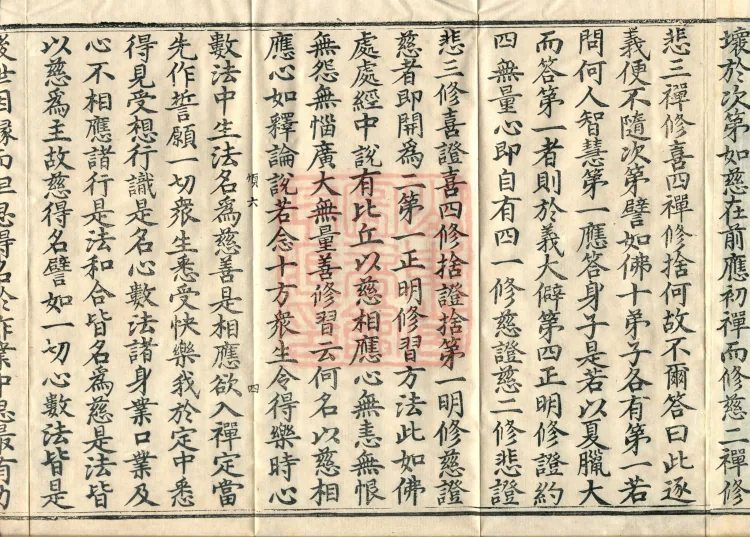 壞於次第如慈在前應初禪而修慈二禪修
悲三禪修喜四禪修捨何故不爾答曰此逐
義便不隨次第譬如佛十弟子各有第一若
問何人智慧第一應答身子是若以夏臘大
而答第一者則於義大僻第四正明修證約
四無量心即自有四一修慈證慈二修悲證
悲三修喜證喜四修捨證捨第一明修慈證
慈者即開為二第一正明修習方法此如佛
處處經中說有比丘以慈相應心無恚無恨
無怨無惱廣大無量善修習云何名以慈相
應心如釋論說若念十方衆生令得樂時心
傾六 四
數法中生法名為慈善是相應欲入禪定當
先作誓願一切衆生悉受快樂我於定中悉
得見受想行識是名心數法諸身業口業及
心不相應諸行是法和合皆名為慈是法皆
以慈為主故慈得名譬如一切心數法皆是
後世因緣而但思得名於作業中思最有力